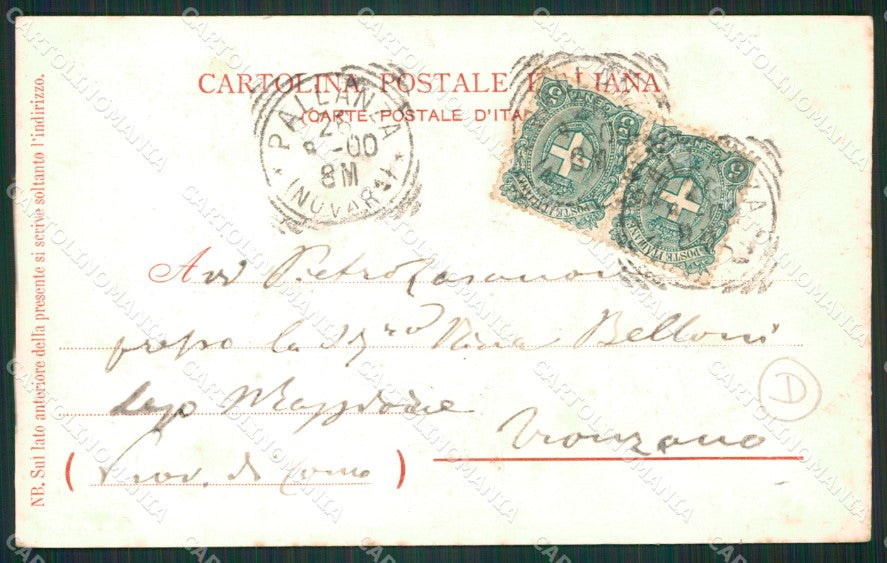 CARTOLINA POSTALE ITALIANA
(CARTE POSTALE D'ITA
PALLANZA
26
8 -00
8M
(NOVARA)
POSTE ITALIANE
5
5
Avv Pietro Casanova
presso la Sig.ra Nina Belloni
Lago Maggiore
Vronzano
(Prov. di Como)
NB. Sul lato anteriore della presente si scrive soltanto l'indirizzo.
A
CARTOLINOMANIA